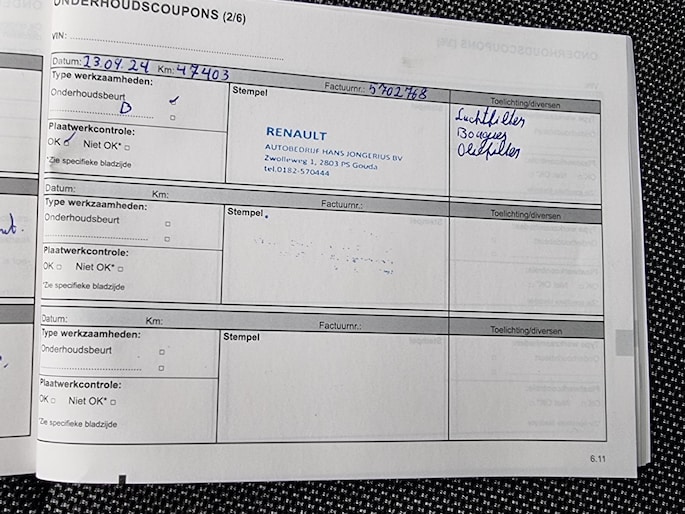 ONDERHOUDSCOUPONS (2/6)
VIN:
Datum: 23.04.24 Km: 47403 Factuurnr.: 5702768
Type werkzaamheden:
Onderhoudsbeurt
D
Plaatwerkcontrole:
OK Niet OK*
*Zie specifieke bladzijde
Stempel
RENAULT
AUTOBEDRIJF HANS JONGERIUS BV
Zwolleweg 1, 2803 PS Gouda
tel.0182-570444
Toelichting/diversen
Luchtfilter
Bougies
Oliefilter
Datum: Km: Factuurnr.:
Type werkzaamheden:
Onderhoudsbeurt
Plaatwerkcontrole:
OK Niet OK*
*Zie specifieke bladzijde
Stempel
Toelichting/diversen
Datum: Km: Factuurnr.:
Type werkzaamheden:
Onderhoudsbeurt
Plaatwerkcontrole:
OK Niet OK*
*Zie specifieke bladzijde
Stempel
Toelichting/diversen
6.11